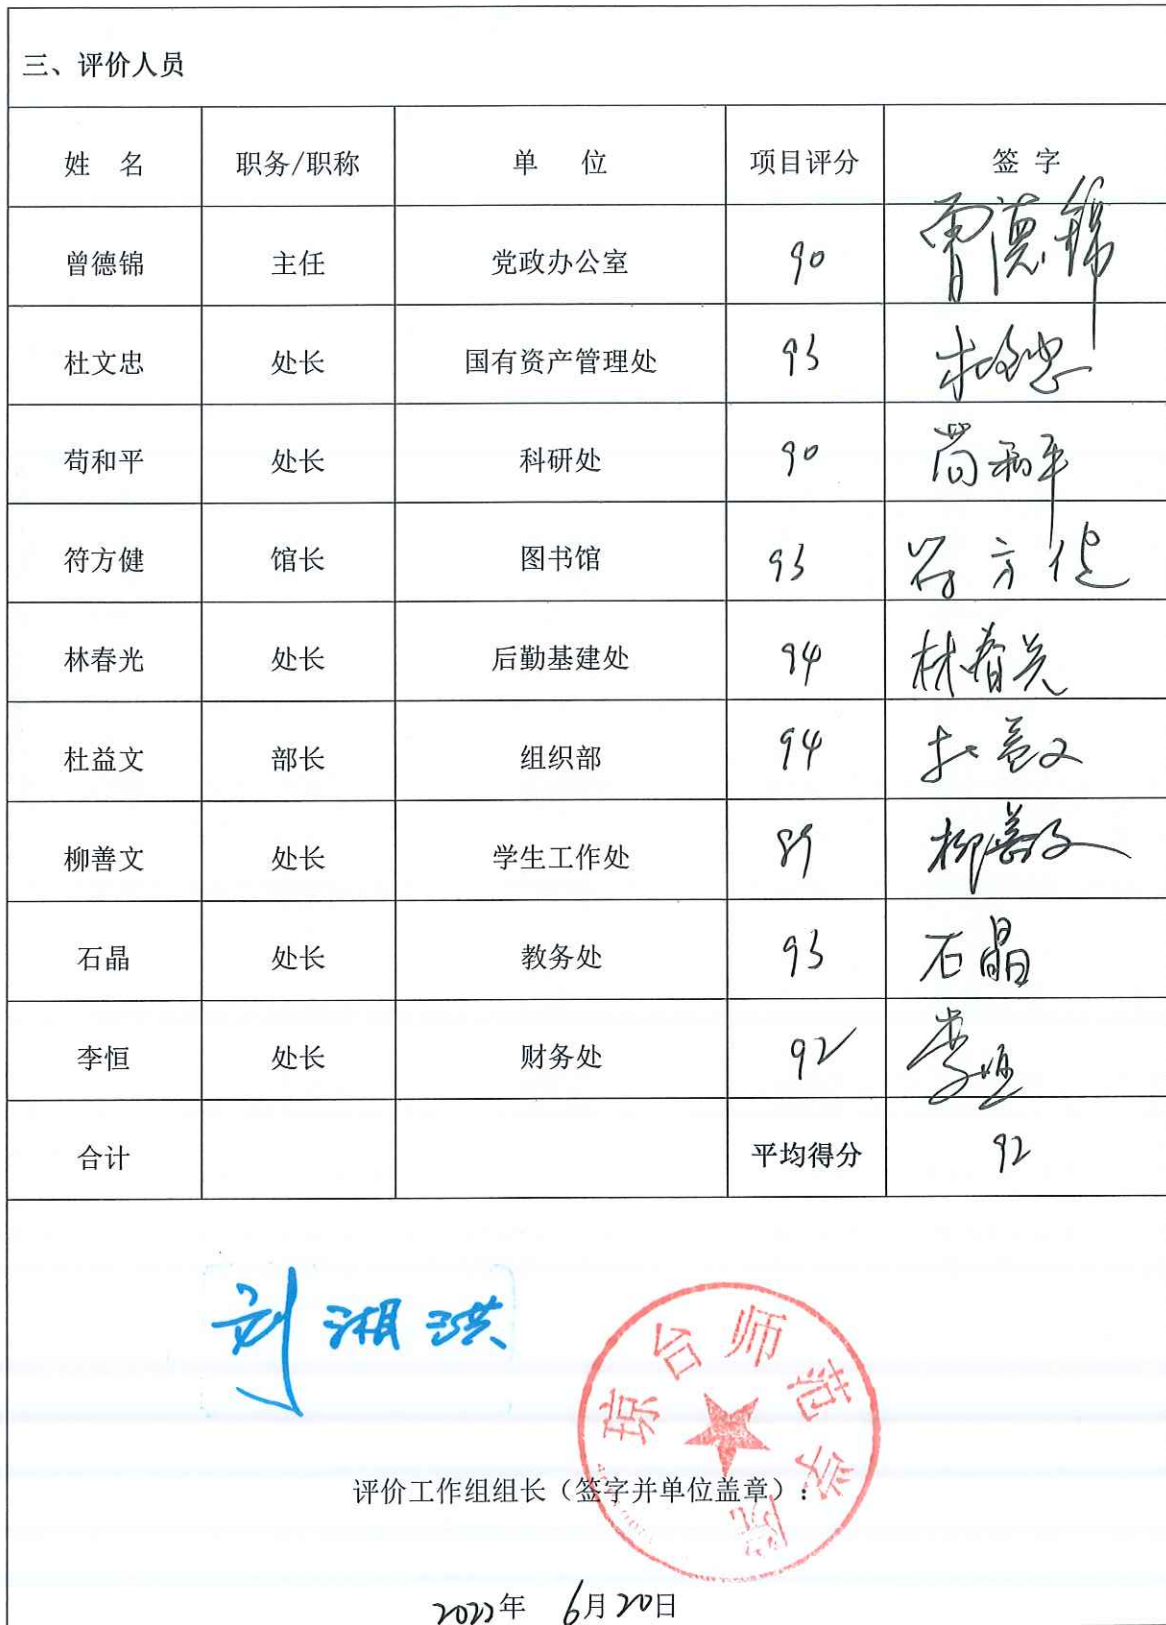 三、评价人员
姓 名 职务/职称 单 位 项目评分 签 字
曾德锦 主任 党政办公室 90 曾德锦
杜文忠 处长 国有资产管理处 93 杜文忠
苟和平 处长 科研处 90 苟和平
符方健 馆长 图书馆 93 符方健
林春光 处长 后勤基建处 94 林春光
杜益文 部长 组织部 94 杜益文
柳善文 处长 学生工作处 89 柳善文
石晶 处长 教务处 93 石晶
李恒 处长 财务处 92 李恒
合计 平均得分 92
刘湘洪
琼台师范学院
评价工作组组长（签字并单位盖章）：
2022年 6月20日